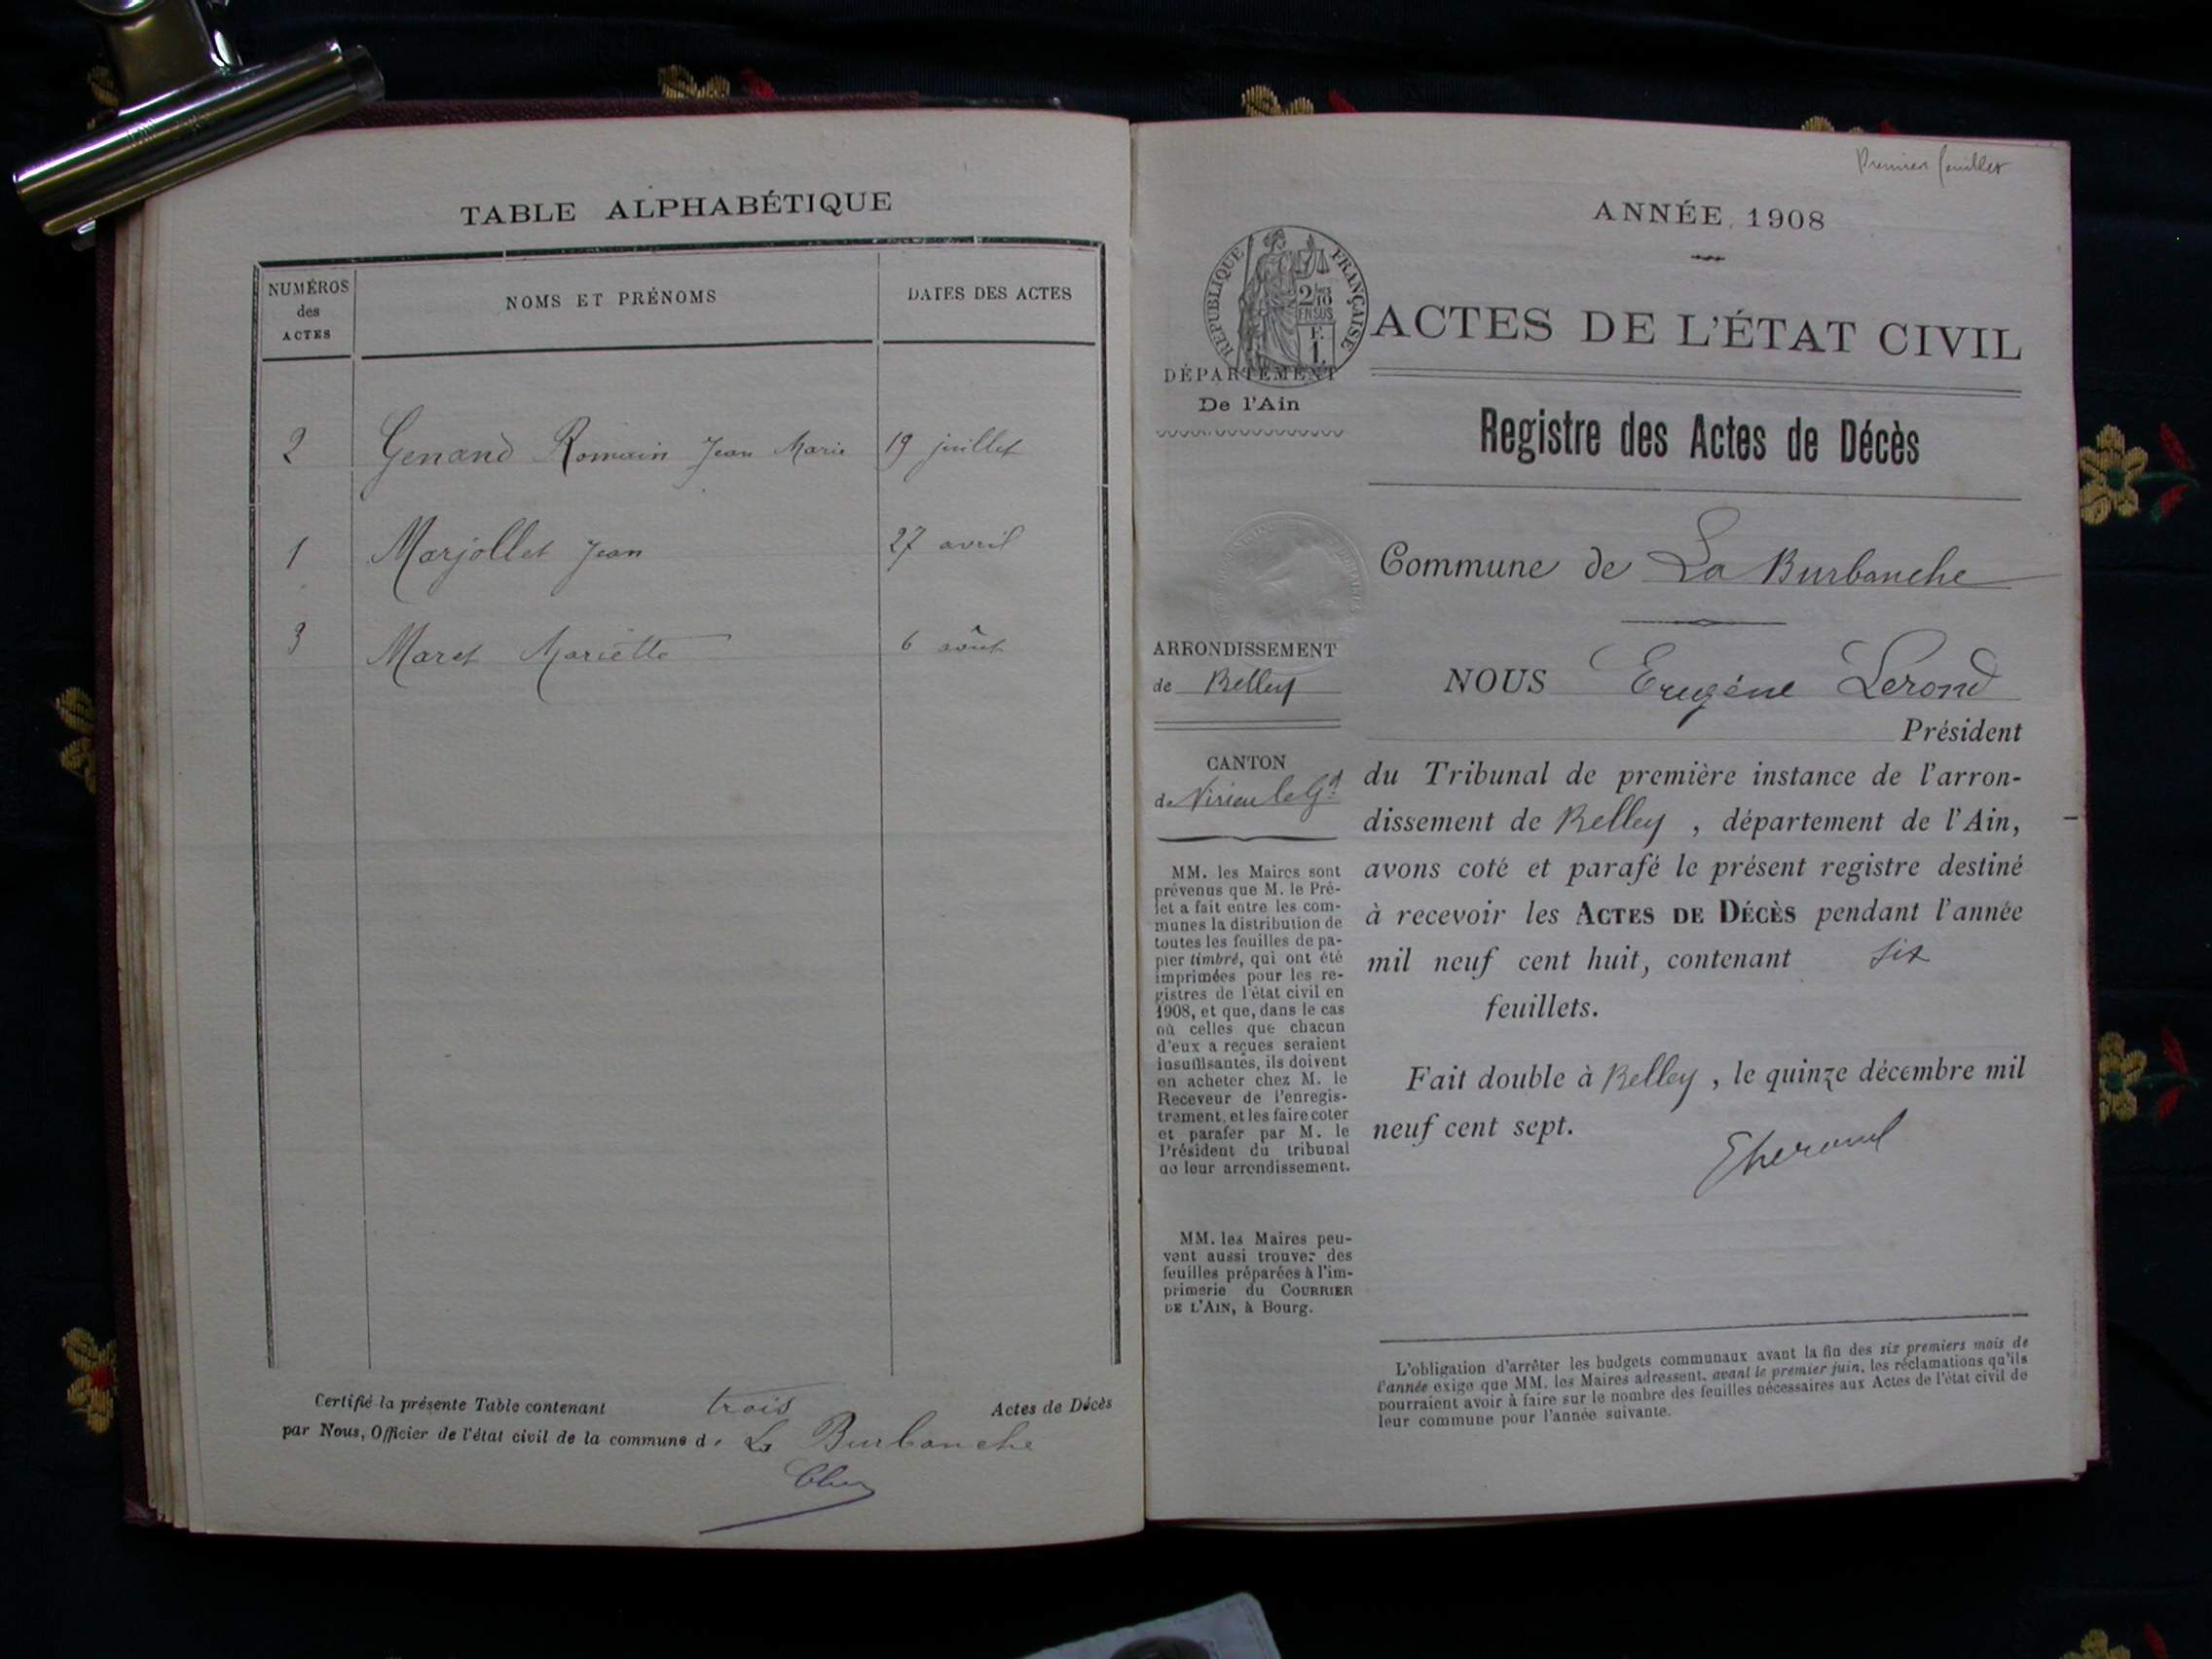 TABLE ALPHABÉTIQUE
NUMÉROS des ACTES
NOMS ET PRÉNOMS
DATES DES ACTES
2 Genand Romain Jean Marie 19 juillet
1 Marjollet Jean 27 avril
3 Maret Mariette 6 août
Certifié la présente Table contenant trois Actes de Décès
par Nous, Officier de l'état civil de la commune de La Burbanche
Premier feuillet
ANNÉE 1908
RÉPUBLIQUE FRANÇAISE
2/10
EN SUS
F.
1.
ACTES DE L'ÉTAT CIVIL
DÉPARTEMENT
De l'Ain
Registre des Actes de Décès
Commune de La Burbanche
ARRONDISSEMENT
de Belley
NOUS Eugène Lerond
Président
CANTON
de Virieu le Gd
du Tribunal de première instance de l'arron-
dissement de Belley, département de l'Ain,
avons coté et parafé le présent registre destiné
à recevoir les ACTES DE DÉCÈS pendant l'année
mil neuf cent huit, contenant six
feuillets.
Fait double à Belley, le quinze décembre mil
neuf cent sept.
MM. les Maires sont
prévenus que M. le Pré-
fet a fait entre les com-
munes la distribution de
toutes les feuilles de pa-
pier timbré, qui ont été
imprimées pour les re-
gistres de l'état civil en
1908, et que, dans le cas
où celles que chacun
d'eux a reçues seraient
insuffisantes, ils doivent
en acheter chez M. le
Receveur de l'enregis-
trement, et les faire coter
et parafer par M. le
Président du tribunal
de leur arrondissement.
MM. les Maires peu-
vent aussi trouver des
feuilles préparées à l'im-
primerie du COURRIER
DE L'AIN, à Bourg.
L'obligation d'arrêter les budgets communaux avant la fin des six premiers mois de
l'année exige que MM. les Maires adressent, avant le premier juin, les réclamations qu'ils
pourraient avoir à faire sur le nombre des feuilles nécessaires aux Actes de l'état civil de
leur commune pour l'année suivante.